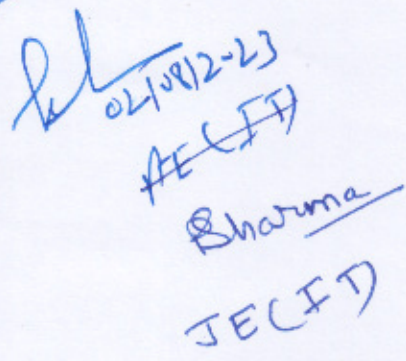 02/08/2023
AE (IT)
Sharma
JE (IT)